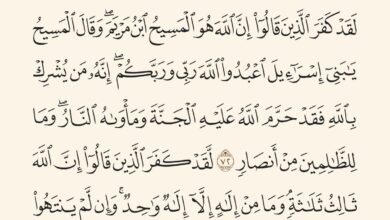 لَقَدْ كَفَرَ ٱلَّذِينَ قَالُوٓا۟ إِنَّ ٱللَّهَ هُوَ ٱلْمَسِيحُ ٱبْنُ مَرْيَمَ ۖ وَقَالَ ٱلْمَسِيحُ
يَٰبَنِىٓ إِسْرَٰٓءِيلَ ٱعْبُدُوا۟ ٱللَّهَ رَبِّى وَرَبَّكُمْ ۖ إِنَّهُۥ مَن يُشْرِكْ
بِٱللَّهِ فَقَدْ حَرَّمَ ٱللَّهُ عَلَيْهِ ٱلْجَنَّةَ وَمَأْوَىٰهُ ٱلنَّارُ ۖ وَمَا
لِلظَّٰلِمِينَ مِنْ أَنصَارٍ ٧٢ لَّقَدْ كَفَرَ ٱلَّذِينَ قَالُوٓا۟ إِنَّ ٱللَّهَ
ثَالِثُ ثَلَٰثَةٍ ۘ وَمَا مِنْ إِلَٰهٍ إِلَّآ إِلَٰهٌ وَٰحِدٌ ۚ وَإِن لَّمْ يَنتَهُوا۟